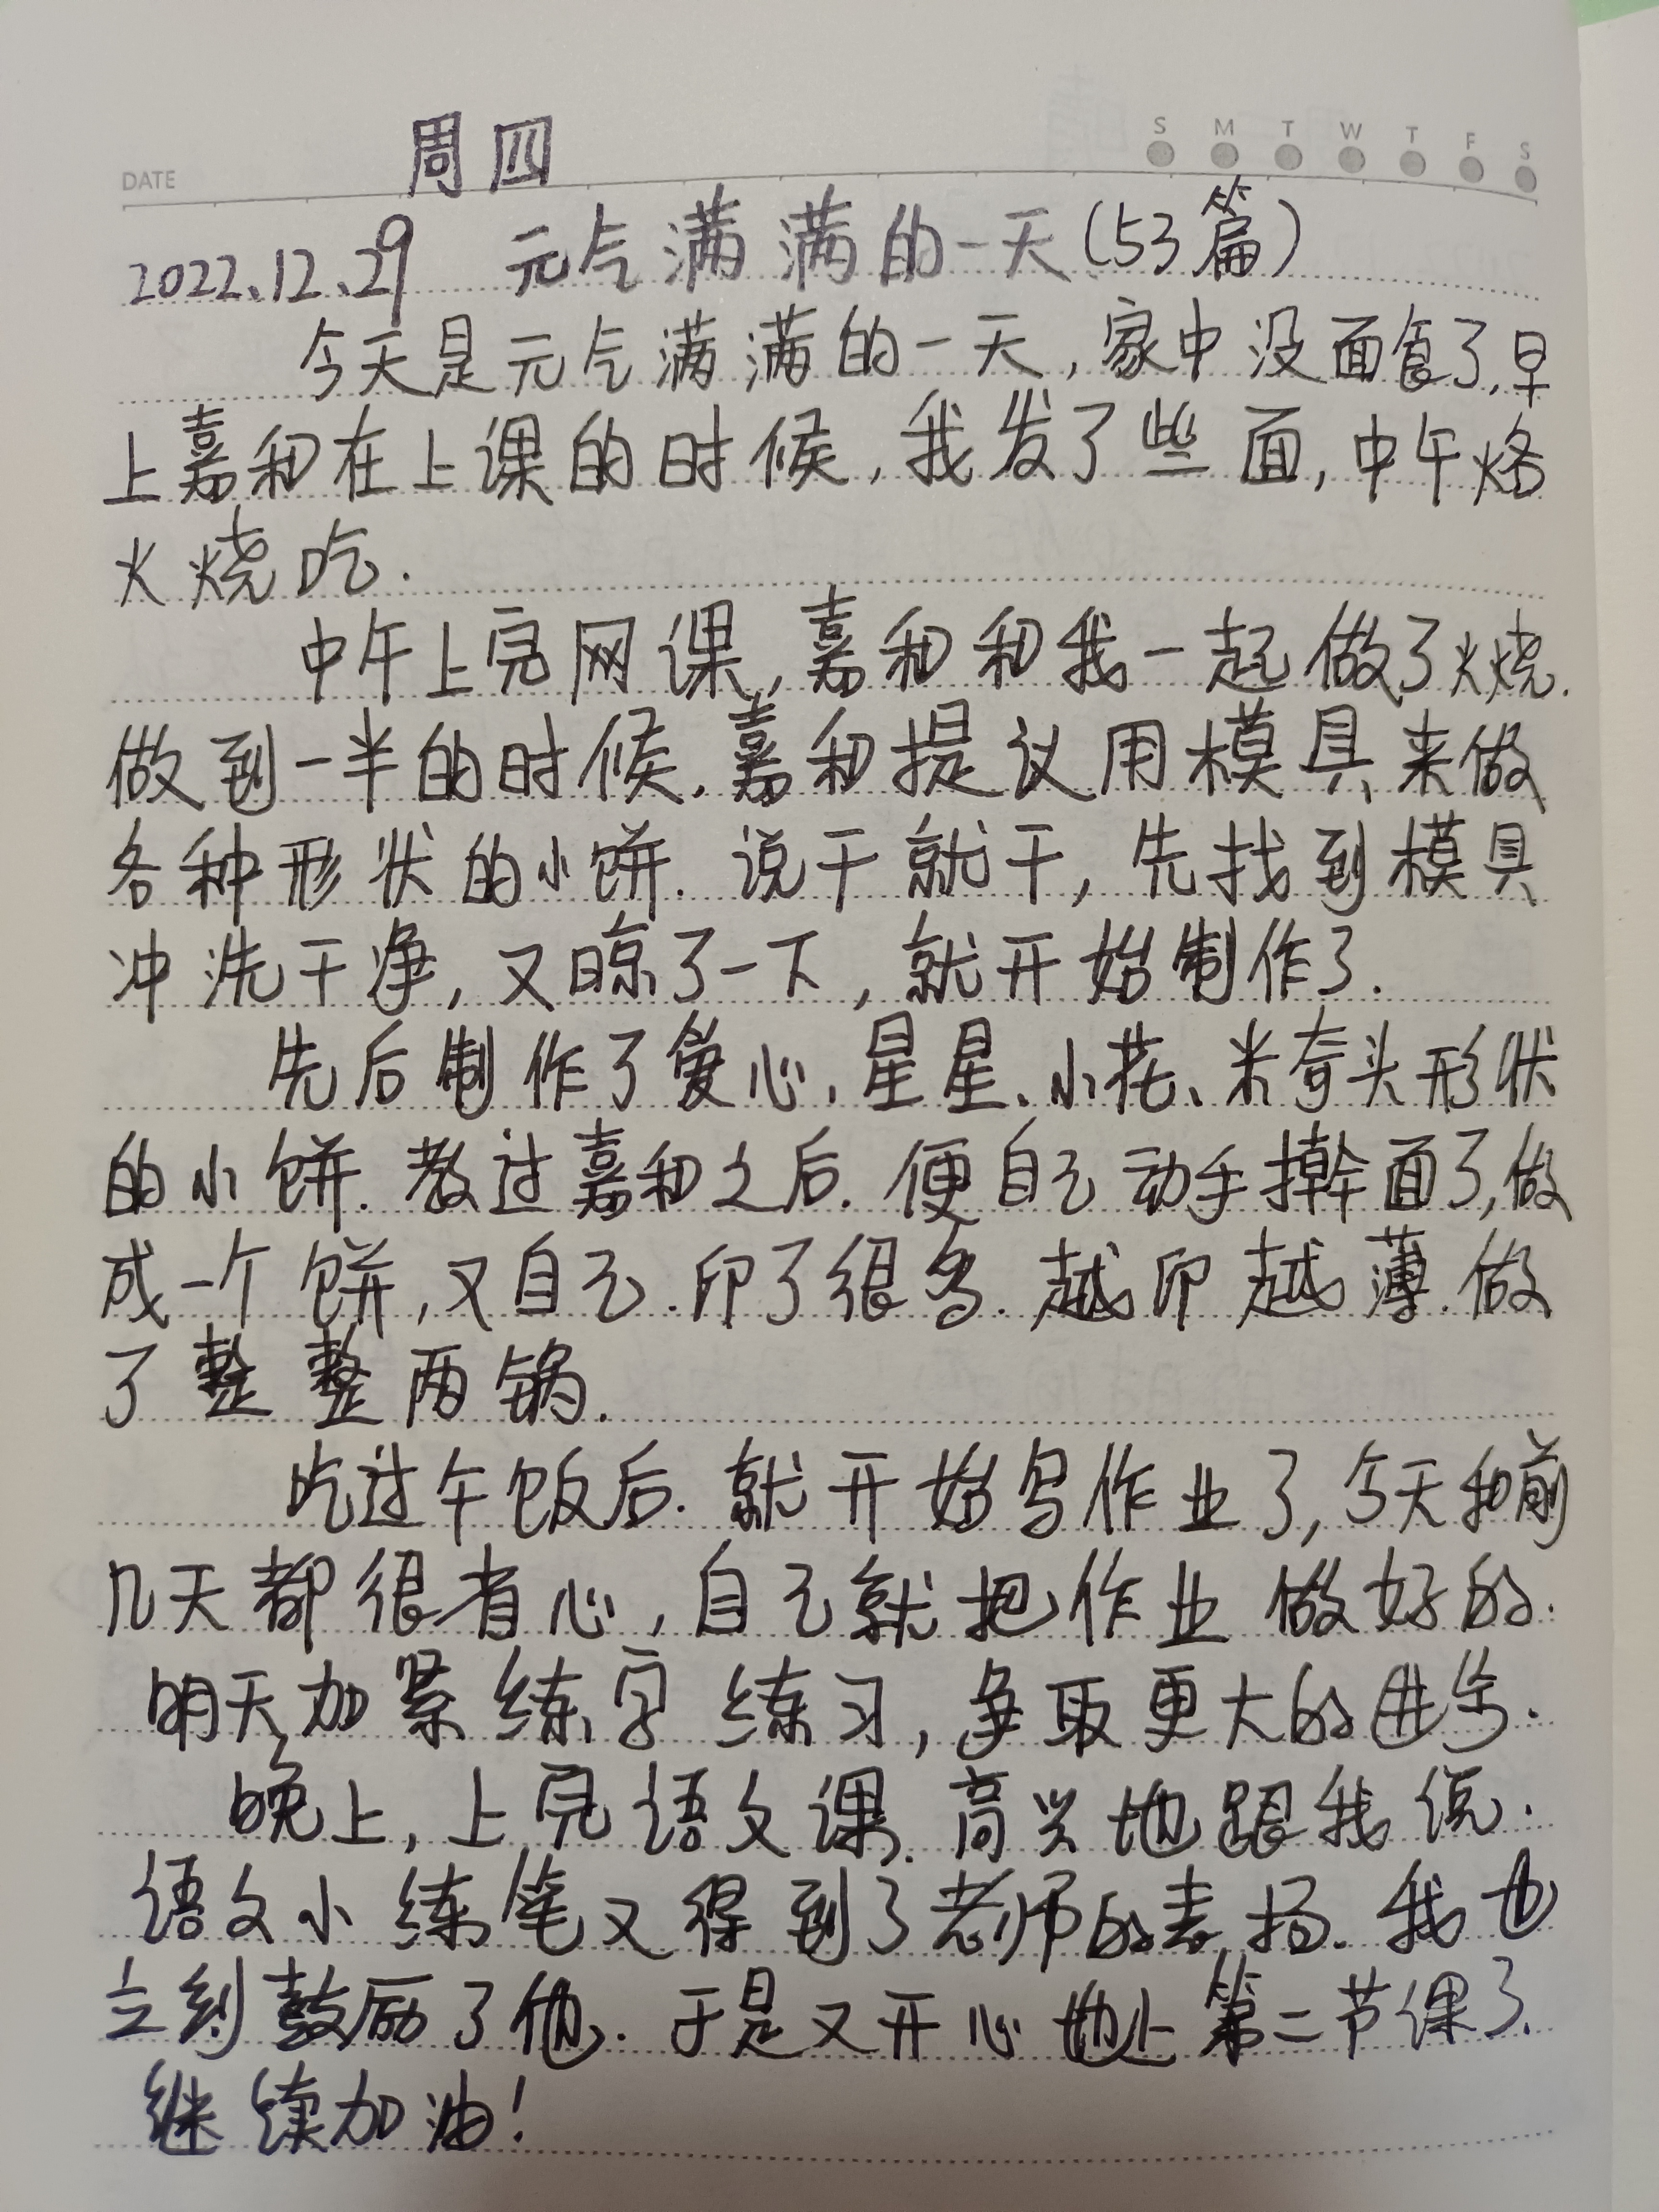 周四
S M T W T F S
DATE
2022.12.29 元气满满的一天(53篇)
今天是元气满满的一天,家中没面食了,早
上嘉和在上课的时候,我发了些面,中午烙
火烧吃.
中午上完网课,嘉和和我一起做了火烧.
做到一半的时候.嘉和提议用模具来做
各种形状的小饼.说干就干,先找到模具
冲洗干净,又晾了一下,就开始制作了.
先后制作了爱心、星星、小花、米奇头形状
的小饼.教过嘉和之后.便自己动手擀面了,做
成一个饼,又自己.印了很多.越印越薄.做
了整整两锅.
吃过午饭后.就开始写作业了,今天和前
几天都很有心,自己就把作业做好的.
明天加紧练字练习,争取更大的进步.
晚上,上完语文课.高兴地跟我说.
语文小练笔又得到了老师的表扬.我也
立刻鼓励了他.于是又开心地上第二节课了.
继续加油!